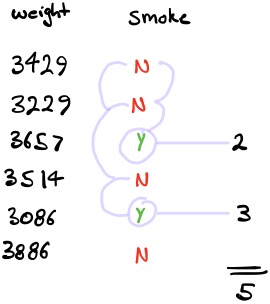 weight smoke
3429 N
3229 N
3657 Y 2
3514 N
3086 Y 3
3886 N
5